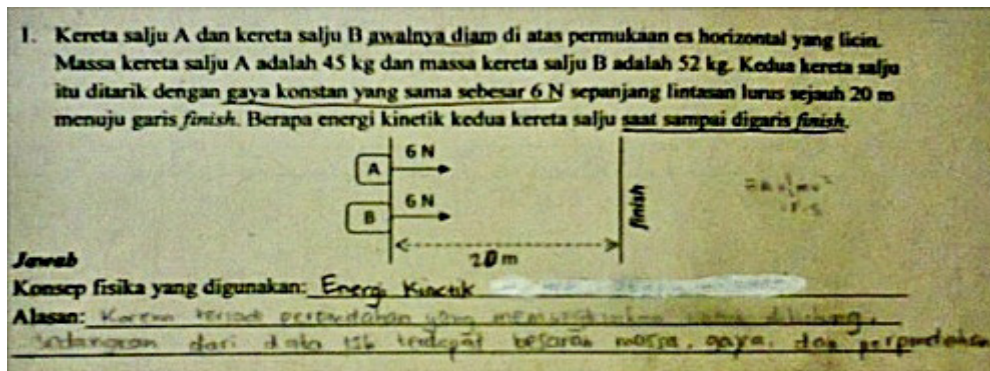 1. Kereta salju A dan kereta salju B awalnya diam di atas permukaan es horizontal yang licin.
Massa kereta salju A adalah 45 kg dan massa kereta salju B adalah 52 kg. Kedua kereta salju
itu ditarik dengan gaya konstan yang sama sebesar 6 N sepanjang lintasan lurus sejauh 20 m
menuju garis finish. Berapa energi kinetik kedua kereta salju saat sampai digaris finish.
A 6 N
B 6 N
finish
20 m
Jawab
Konsep fisika yang digunakan: Energi Kinetik
Alasan: Karena terjadi perpindahan yang
dari data tsb terdapat besaran massa, gaya, dan perpindahan